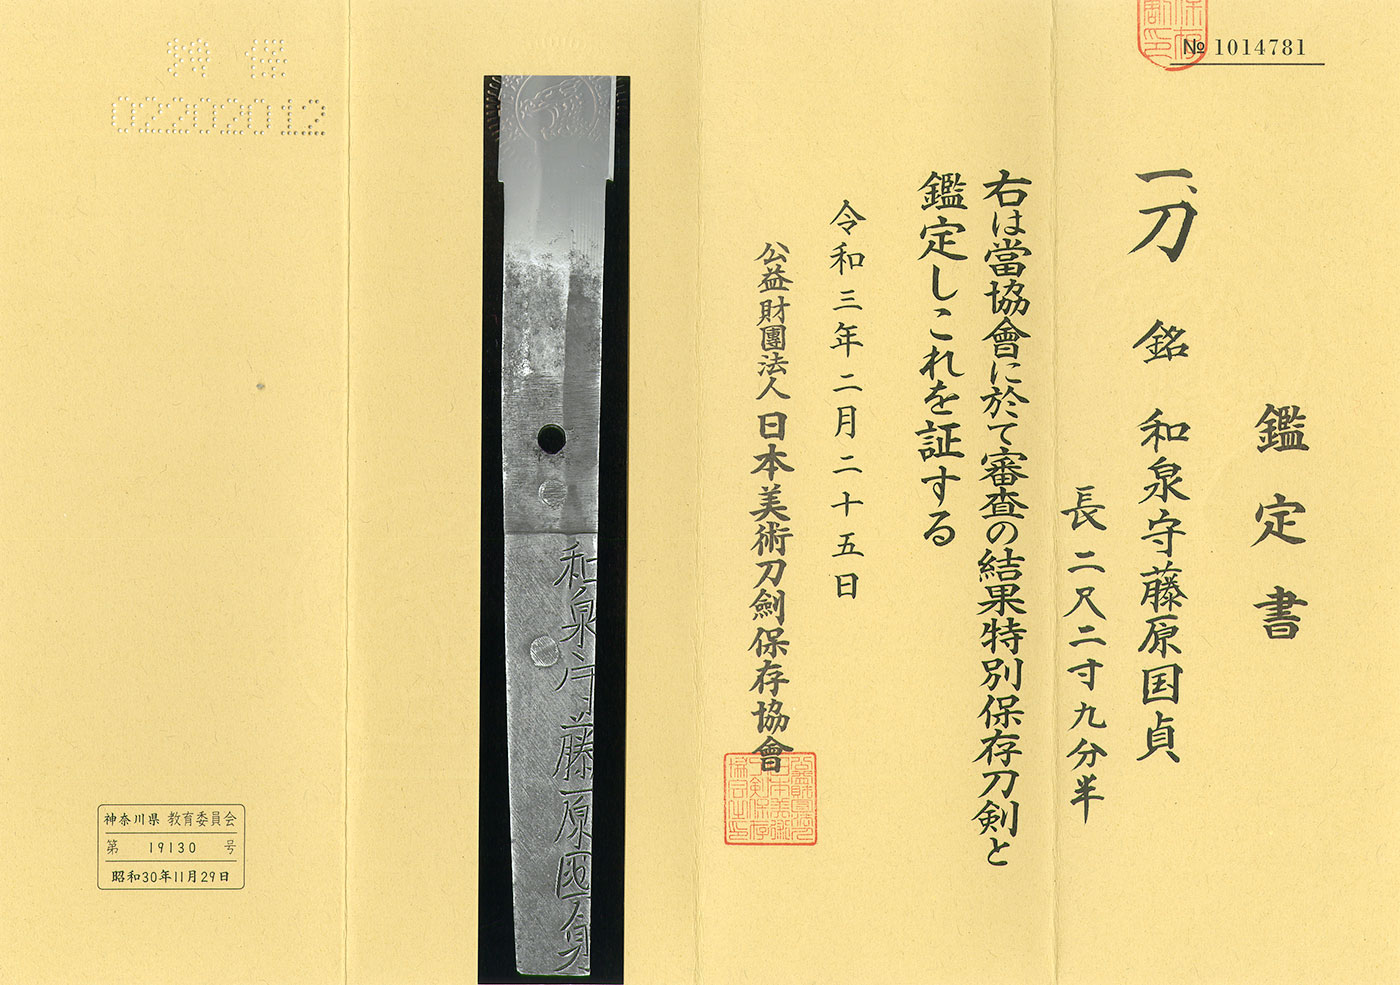 № 1014781
鑑定書
一、刀 銘 和泉守藤原国貞
長二尺二寸九分半
右は當協會に於て審査の結果特別保存刀剣と
鑑定しこれを証する
令和三年二月二十五日
公益財團法人 日本美術刀劍保存協會
和泉守藤原國貞
02202012
神奈川県 教育委員会
第 19130 号
昭和30年11月29日